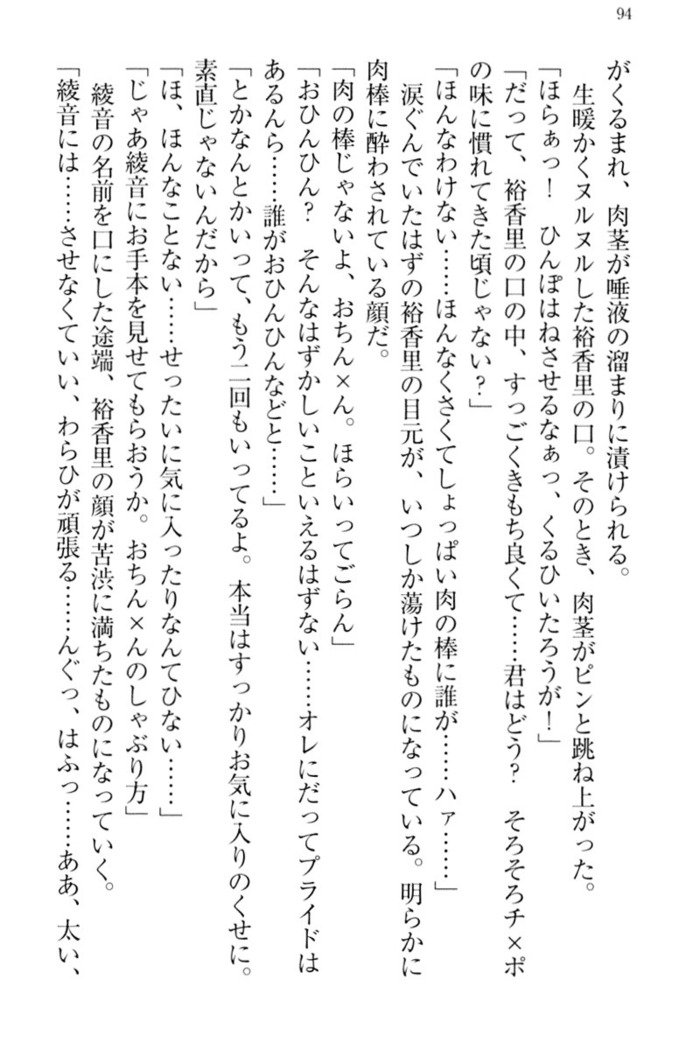 94
がくるまれ、肉茎が唾液の溜まりに漬けられる。
　生暖かくヌルヌルした裕香里の口。そのとき、肉茎がピンと跳ね上がった。
「ほらぁっ！　ひんぽはねさせるなぁっ、くるひいたろうが！」
「だって、裕香里の口の中、すっごくきもち良くて……君はどう？　そろそろチ×ポ
の味に慣れてきた頃じゃない？」
「ほんなわけない……ほんなくさくてしょっぱい肉の棒に誰が……ハァ……」
　涙ぐんでいたはずの裕香里の目元が、いつしか蕩けたものになっている。明らかに
肉棒に酔わされている顔だ。
「肉の棒じゃないよ、おちん×ん。ほらいってごらん」
「おひんひん？　そんなはずかしいこといえるはずない……オレにだってプライドは
あるんら……誰がおひんひんなどと……」
「とかなんとかいって、もう二回もいってるよ。本当はすっかりお気に入りのくせに。
素直じゃないんだから」
「ほ、ほんなことない……せったいに気に入ったりなんてひない……」
「じゃあ綾音にお手本を見せてもらおうか。おちん×んのしゃぶり方」
　綾音の名前を口にした途端、裕香里の顔が苦渋に満ちたものになっていく。
「綾音には……させなくていい、わらひが頑張る……んぐっ、はふっ……ああ、太い、